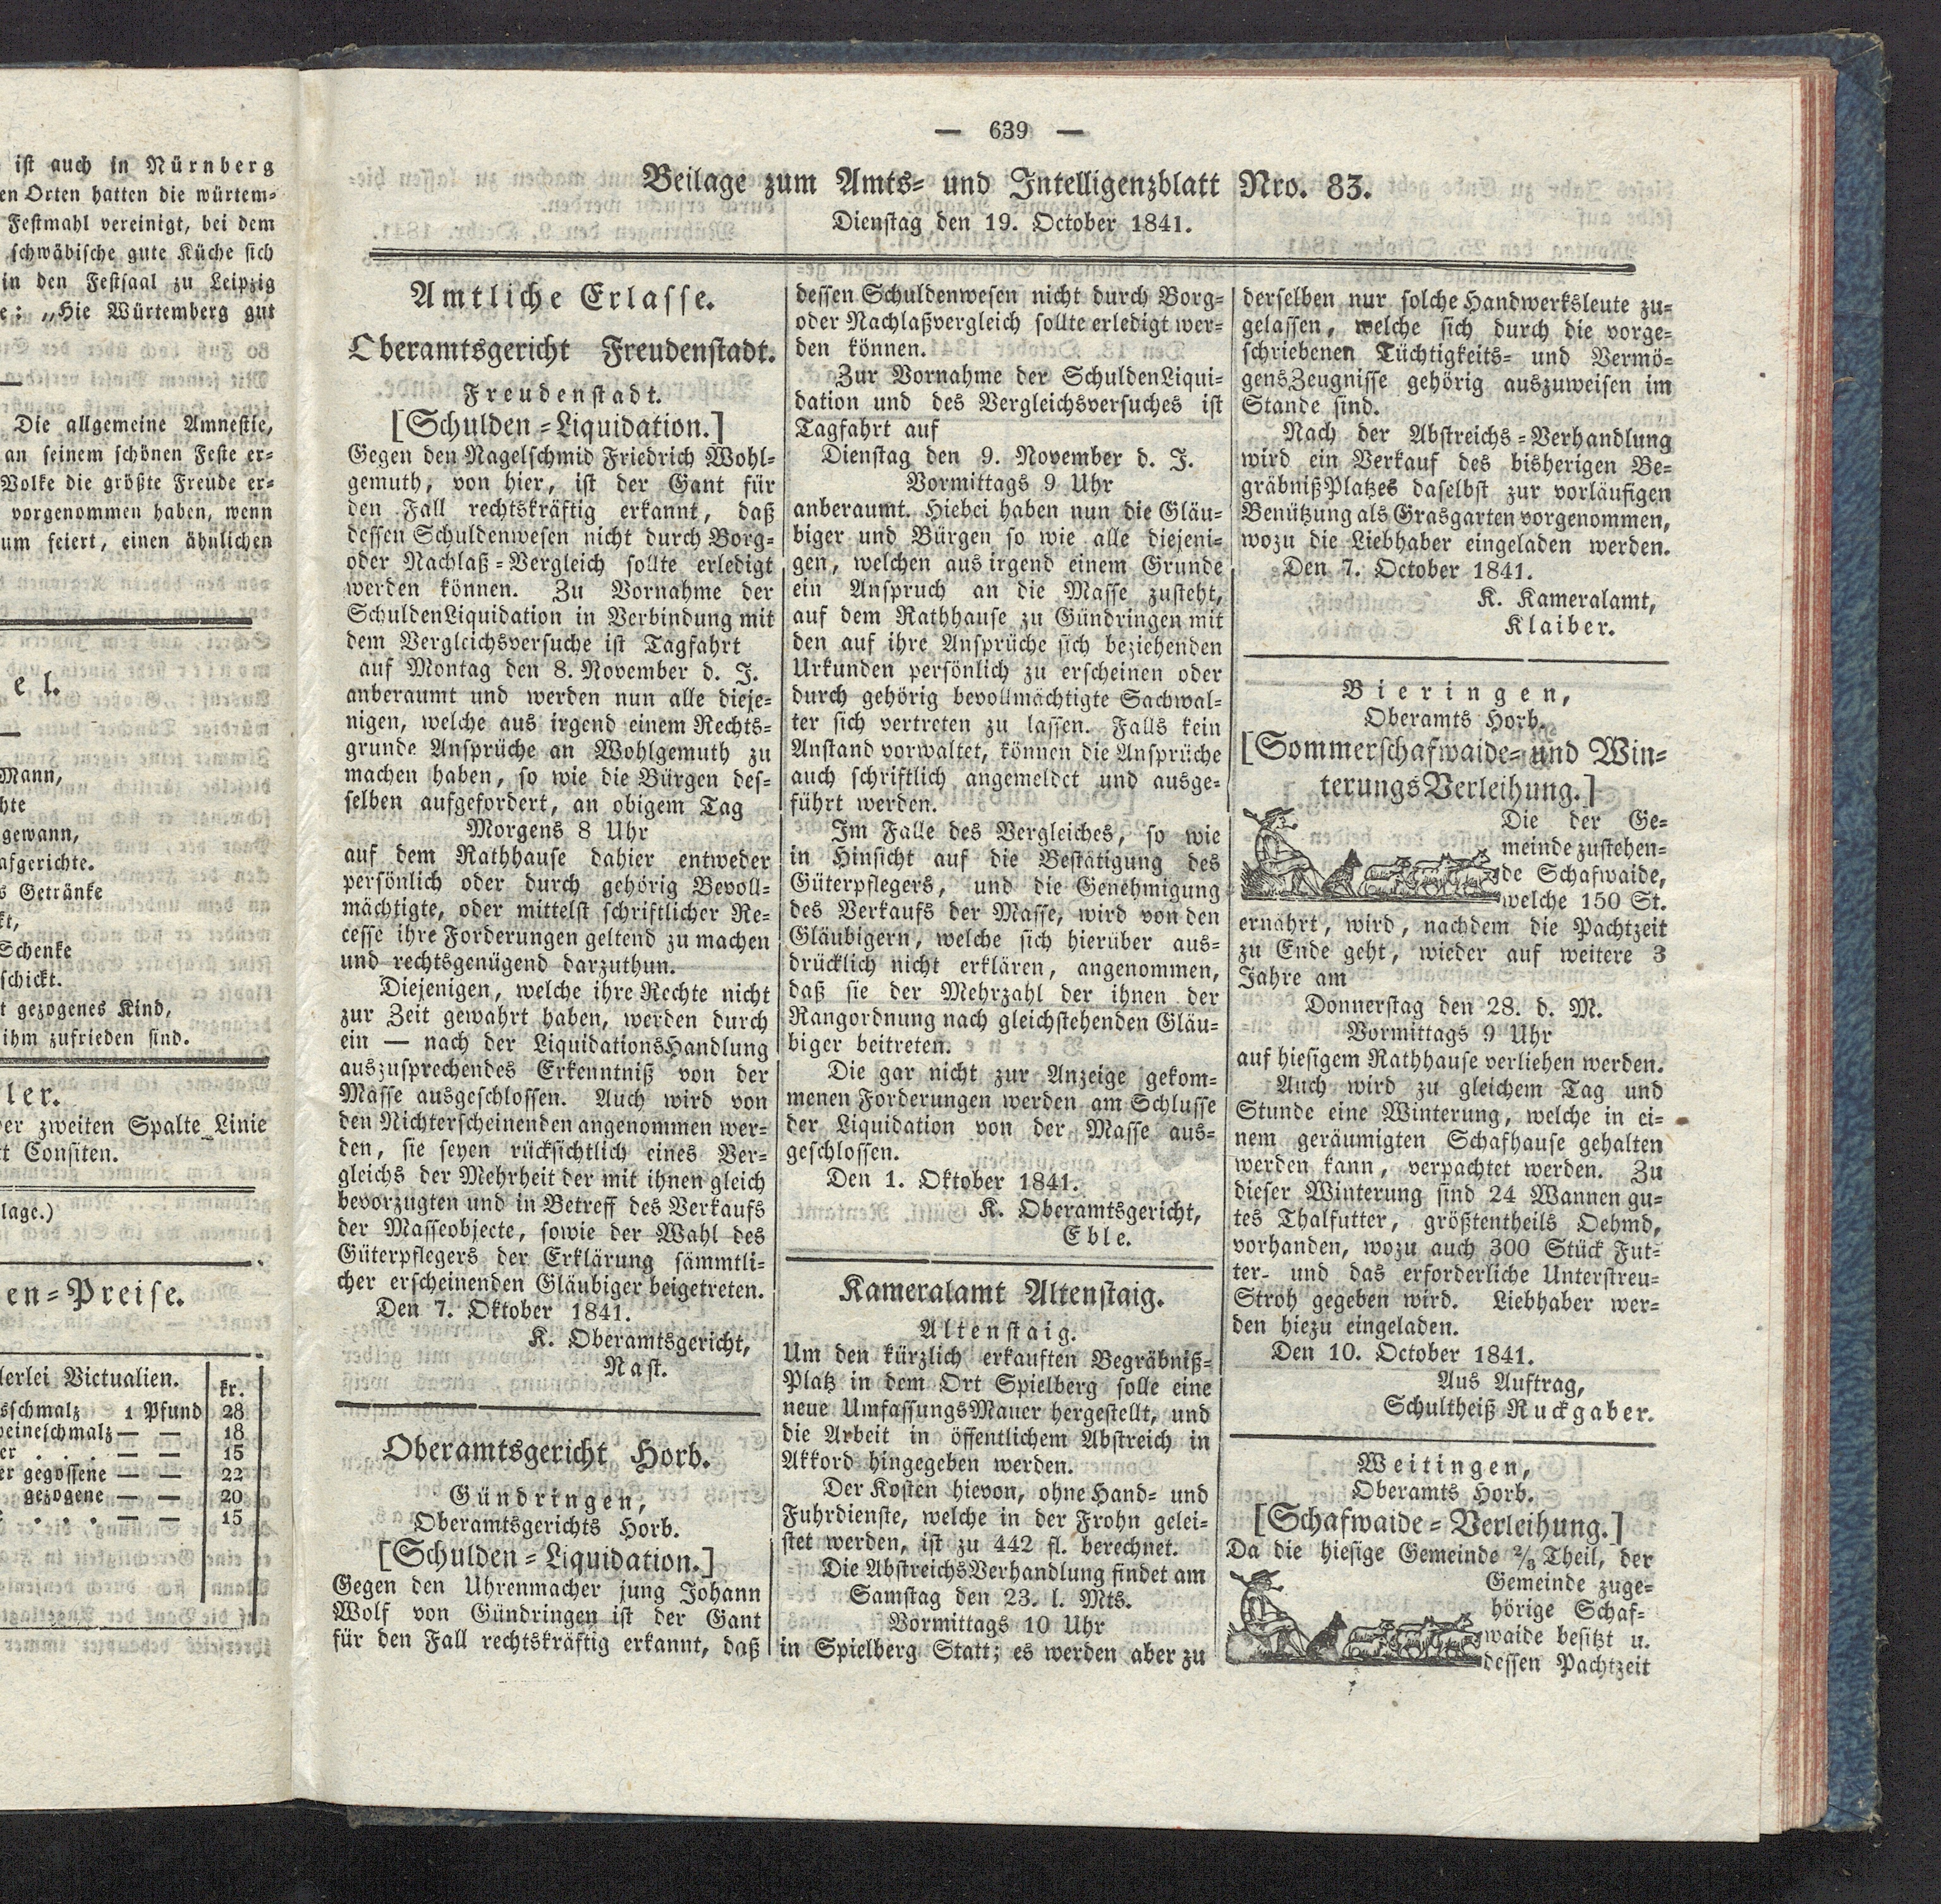 ist auch in Nürnberg
en Orten hatten die würtem-
Festmahl vereinigt, bei dem
schwäbische gute Küche sich
in den Festsaal zu Leipzig
e: „Hie Würtemberg gut
Die allgemeine Amnestie,
an seinem schönen Feste er-
Volke die größte Freude er-
vorgenommen haben, wenn
um feiert, einen ähnlichen
e l.
Mann,
hte
gewann,
afgerichte.
s Getränke
kt,
Schenke
schickt.
t gezogenes Kind,
ihm zufrieden sind.
ler.
er zweiten Spalte Linie
tt Consiten.
lage.)
en-Preise.
lerlei Victualien. kr.
sschmalz 1 Pfund 28
weineschmalz — — 18
er . . . — — 15
er gegossene — — 22
gezogene — — 20
. . . — — 15
— 639 —
Beilage zum Amts- und Intelligenzblatt Nro. 83.
Dienstag den 19. October 1841.
Amtliche Erlasse.
Oberamtsgericht Freudenstadt.
Freudenstadt.
[Schulden-Liquidation.]
Gegen den Nagelschmid Friedrich Wohl-
gemuth, von hier, ist der Gant für
den Fall rechtskräftig erkannt, daß
dessen Schuldenwesen nicht durch Borg-
oder Nachlaß-Vergleich sollte erledigt
werden können. Zu Vornahme der
SchuldenLiquidation in Verbindung mit
dem Vergleichsversuche ist Tagfahrt
auf Montag den 8. November d. J.
anberaumt und werden nun alle dieje-
nigen, welche aus irgend einem Rechts-
grunde Ansprüche an Wohlgemuth zu
machen haben, so wie die Bürgen des-
selben aufgefordert, an obigem Tag
Morgens 8 Uhr
auf dem Rathhause dahier entweder
persönlich oder durch gehörig Bevoll-
mächtigte, oder mittelst schriftlicher Re-
cesse ihre Forderungen geltend zu machen
und rechtsgenügend darzuthun.
Diejenigen, welche ihre Rechte nicht
zur Zeit gewahrt haben, werden durch
ein — nach der LiquidationsHandlung
auszusprechendes Erkenntniß von der
Masse ausgeschlossen. Auch wird von
den Nichterscheinenden angenommen wer-
den, sie seyen rücksichtlich eines Ver-
gleichs der Mehrheit der mit ihnen gleich
bevorzugten und in Betreff des Verkaufs
der Masseobjecte, sowie der Wahl des
Güterpflegers der Erklärung sämmtli-
cher erscheinenden Gläubiger beigetreten.
Den 7. Oktober 1841.
K. Oberamtsgericht,
Nast.
Oberamtsgericht Horb.
Gündringen,
Oberamtsgerichts Horb.
[Schulden-Liquidation.]
Gegen den Uhrenmacher jung Johann
Wolf von Gündringen ist der Gant
für den Fall rechtskräftig erkannt, daß
dessen Schuldenwesen nicht durch Borg-
oder Nachlaßvergleich sollte erledigt wer-
den können.
Zur Vornahme der SchuldenLiqui-
dation und des Vergleichsversuches ist
Tagfahrt auf
Dienstag den 9. November d. J.
Vormittags 9 Uhr
anberaumt. Hiebei haben nun die Gläu-
biger und Bürgen so wie alle diejeni-
gen, welchen aus irgend einem Grunde
ein Anspruch an die Masse zusteht,
auf dem Rathhause zu Gündringen mit
den auf ihre Ansprüche sich beziehenden
Urkunden persönlich zu erscheinen oder
durch gehörig bevollmächtigte Sachwal-
ter sich vertreten zu lassen. Falls kein
Anstand vorwaltet, können die Ansprüche
auch schriftlich angemeldet und ausge-
führt werden.
Im Falle des Vergleiches, so wie
in Hinsicht auf die Bestätigung des
Güterpflegers, und die Genehmigung
des Verkaufs der Masse, wird von den
Gläubigern, welche sich hierüber aus-
drücklich nicht erklären, angenommen,
daß sie der Mehrzahl der ihnen der
Rangordnung nach gleichstehenden Gläu-
biger beitreten.
Die gar nicht zur Anzeige gekom-
menen Forderungen werden am Schlusse
der Liquidation von der Masse aus-
geschlossen.
Den 1. Oktober 1841.
K. Oberamtsgericht,
Eble.
Kameralamt Altenstaig.
Altenstaig.
Um den kürzlich erkauften Begräbniß-
Platz in dem Ort Spielberg solle eine
neue UmfassungsMauer hergestellt, und
die Arbeit in öffentlichem Abstreich in
Akkord hingegeben werden.
Der Kosten hievon, ohne Hand- und
Fuhrdienste, welche in der Frohn gelei-
stet werden, ist zu 442 fl. berechnet.
Die AbstreichsVerhandlung findet am
Samstag den 23. l. Mts.
Vormittags 10 Uhr
in Spielberg Statt; es werden aber zu
derselben nur solche Handwerksleute zu-
gelassen, welche sich durch die vorge-
schriebenen Tüchtigkeits- und Vermö-
gensZeugnisse gehörig auszuweisen im
Stande sind.
Nach der Abstreichs-Verhandlung
wird ein Verkauf des bisherigen Be-
gräbnißPlatzes daselbst zur vorläufigen
Benützung als Grasgarten vorgenommen,
wozu die Liebhaber eingeladen werden.
Den 7. October 1841.
K. Kameralamt,
Klaiber.
Bieringen,
Oberamts Horb.
[Sommerschafwaide- und Win-
terungsVerleihung.]
Die der Ge-
meinde zustehen-
de Schafwaide,
welche 150 St.
ernährt, wird, nachdem die Pachtzeit
zu Ende geht, wieder auf weitere 3
Jahre am
Donnerstag den 28. d. M.
Vormittags 9 Uhr
auf hiesigem Rathhause verliehen werden.
Auch wird zu gleichem Tag und
Stunde eine Winterung, welche in ei-
nem geräumigten Schafhause gehalten
werden kann, verpachtet werden. Zu
dieser Winterung sind 24 Wannen gu-
tes Thalfutter, größtentheils Oehmd,
vorhanden, wozu auch 300 Stück Fut-
ter- und das erforderliche Unterstreu-
Stroh gegeben wird. Liebhaber wer-
den hiezu eingeladen.
Den 10. October 1841.
Aus Auftrag,
Schultheiß Ruckgaber.
Weitingen,
Oberamts Horb.
[Schafwaide-Verleihung.]
Da die hiesige Gemeinde 2/3 Theil, der
Gemeinde zuge-
hörige Schaf-
waide besitzt u.
dessen Pachtzeit